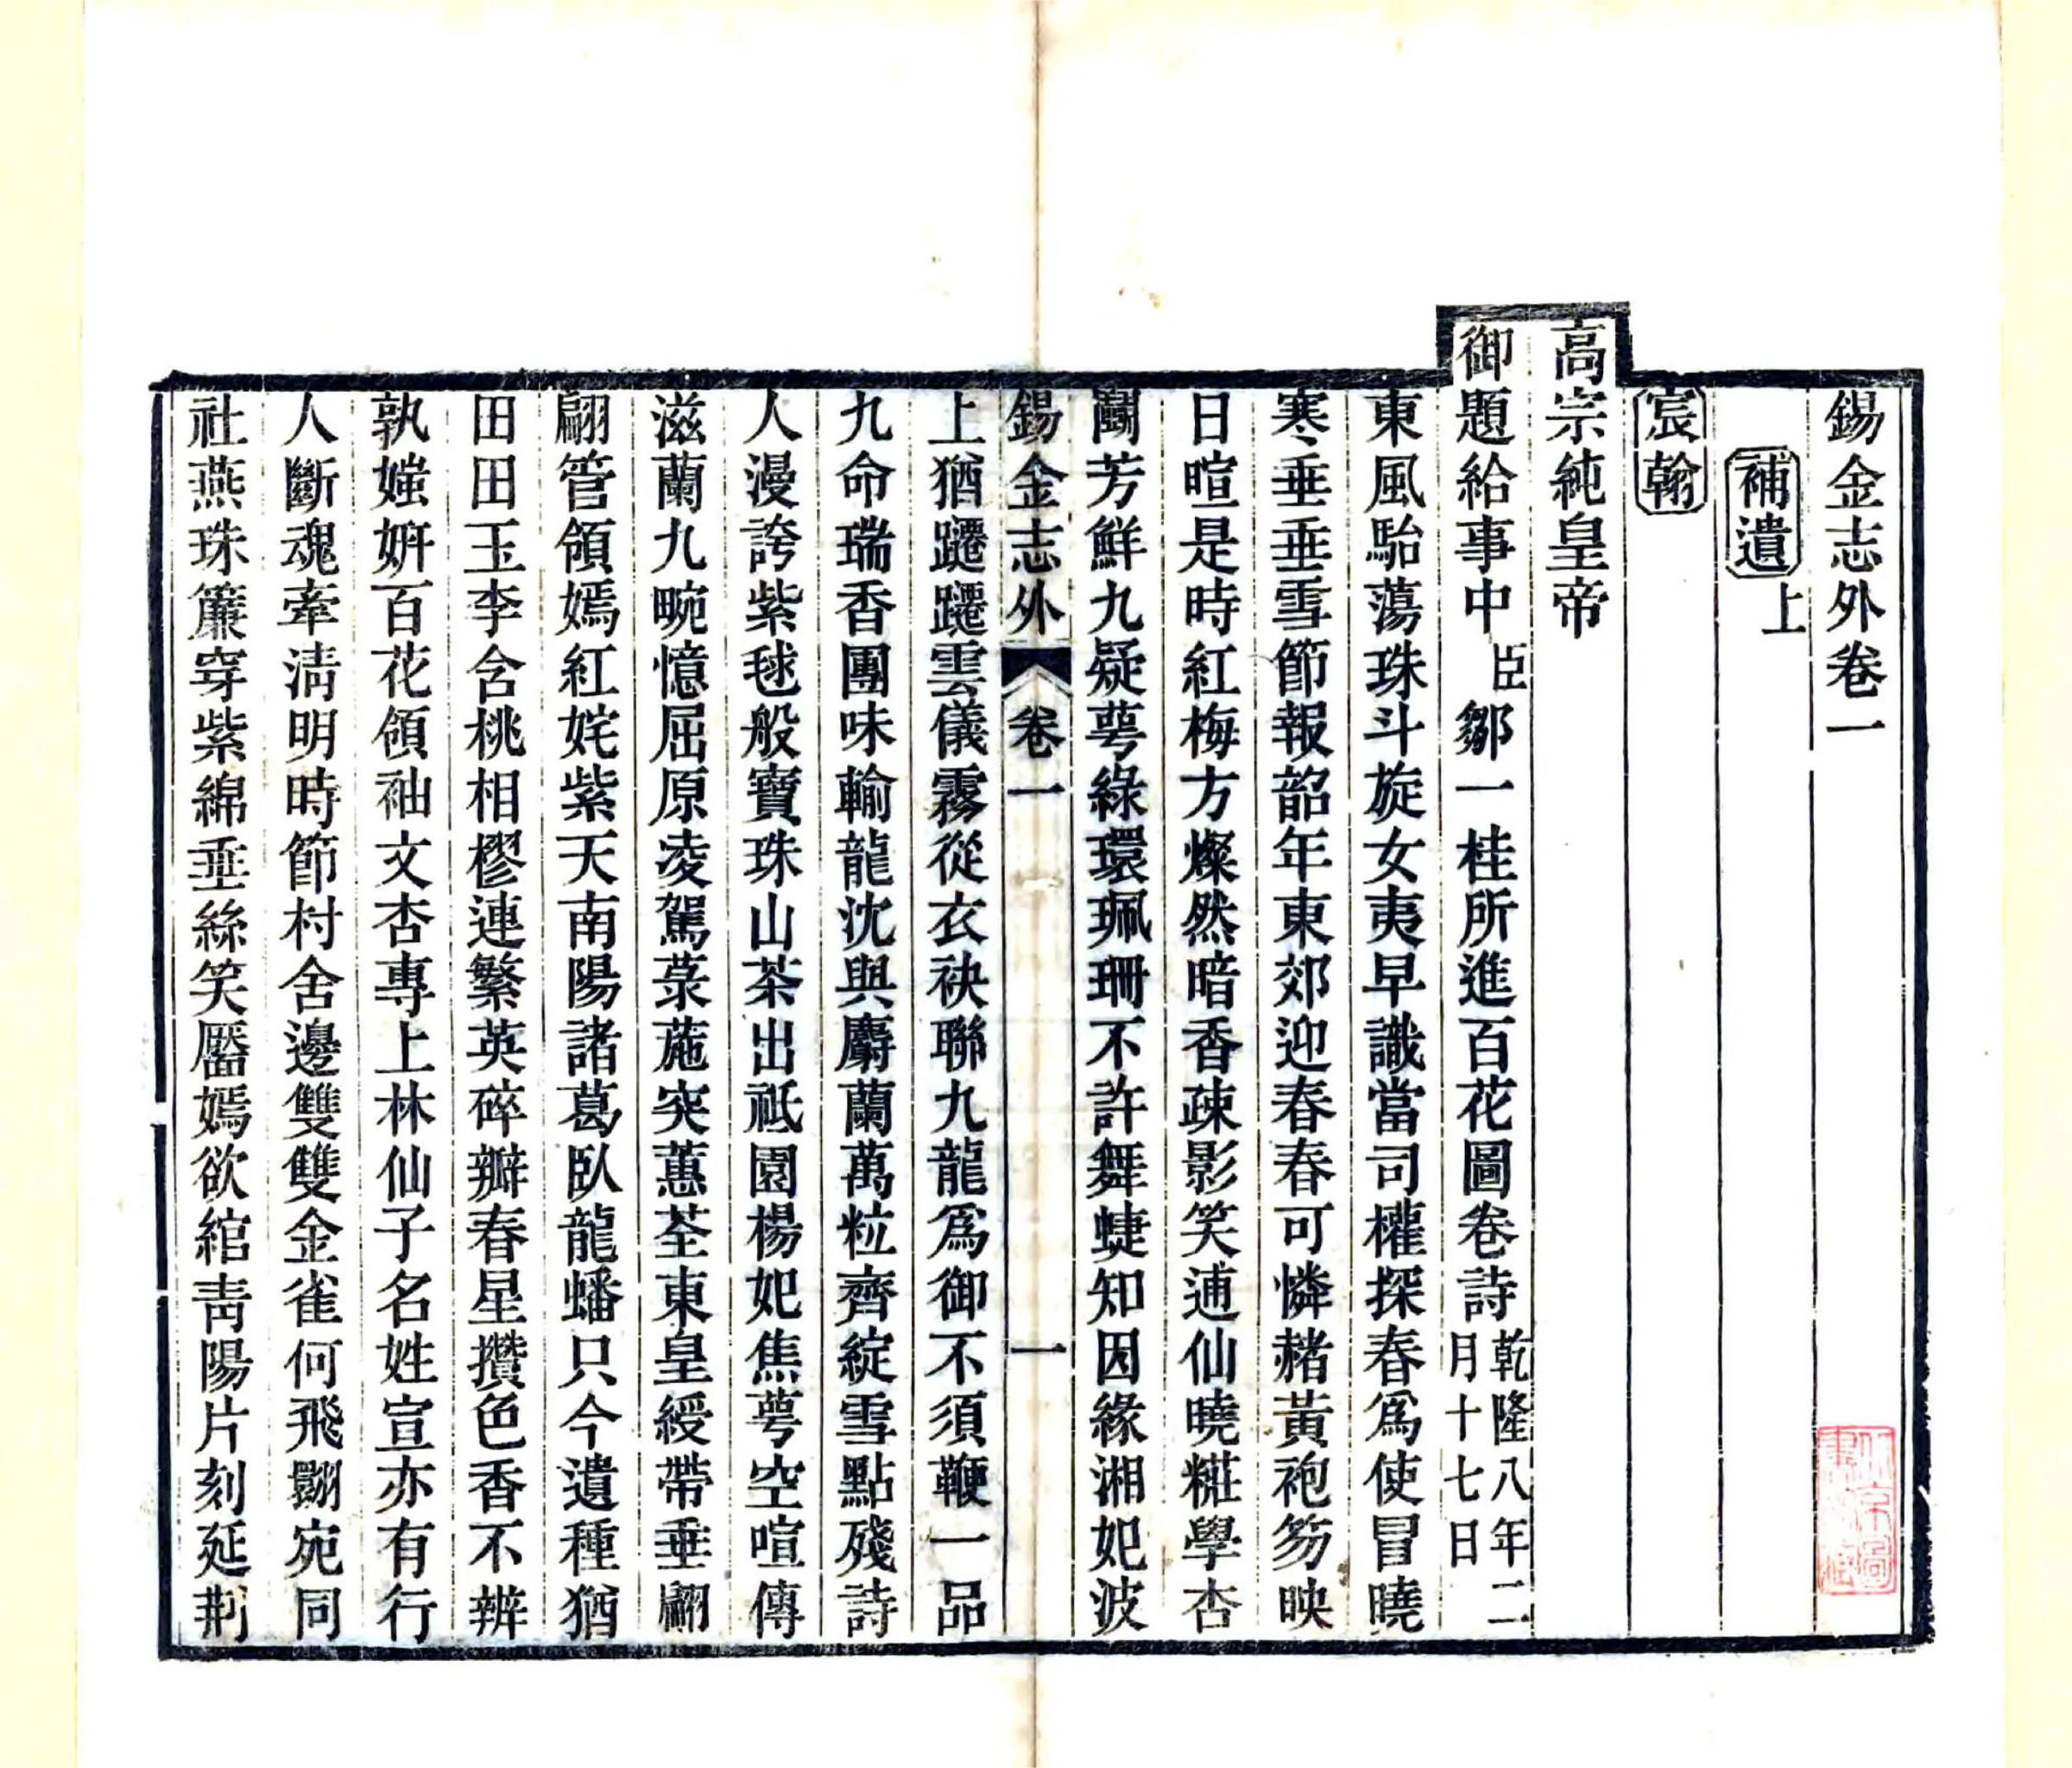 錫金志外卷一
補遺上
宸翰
高宗純皇帝
御題給事中臣鄒一桂所進百花圖卷詩乾隆八年二月十七日
東風駘蕩珠斗旋女夷早識當司權探春爲使冒曉
寒垂垂雪節報韶年東郊迎春春可憐赭黃袍笏映
日暄是時紅梅方燦然暗香疎影笑逋仙曉糚學杏
鬭芳鮮九疑萼綠環珮珊不許舞蜨知因緣湘妃波
錫金志外 卷一 一
上猶躚躚雲儀霧從衣袂聯九龍爲御不須鞭一品
九命瑞香團味輸龍沈與麝蘭萬粒齊綻雪點殘詩
人漫誇紫毬般寶珠山茶出祗園楊妃焦萼空喧傳
滋蘭九畹憶屈原凌駕菉葹突蕙荃東皇綬帶垂翩
翩管領嫣紅姹紫天南陽諸葛臥龍蟠只今遺種猶
田田玉李含桃相樛連繁英碎瓣春星攢色香不辨
孰媸妍百花領袖文杏專上林仙子名姓宣亦有行
人斷魂牽淸明時節村舍邊雙雙金雀何飛翾宛同
社燕珠簾穿紫綿垂絲笑靨嫣欲綰靑陽片刻延荆